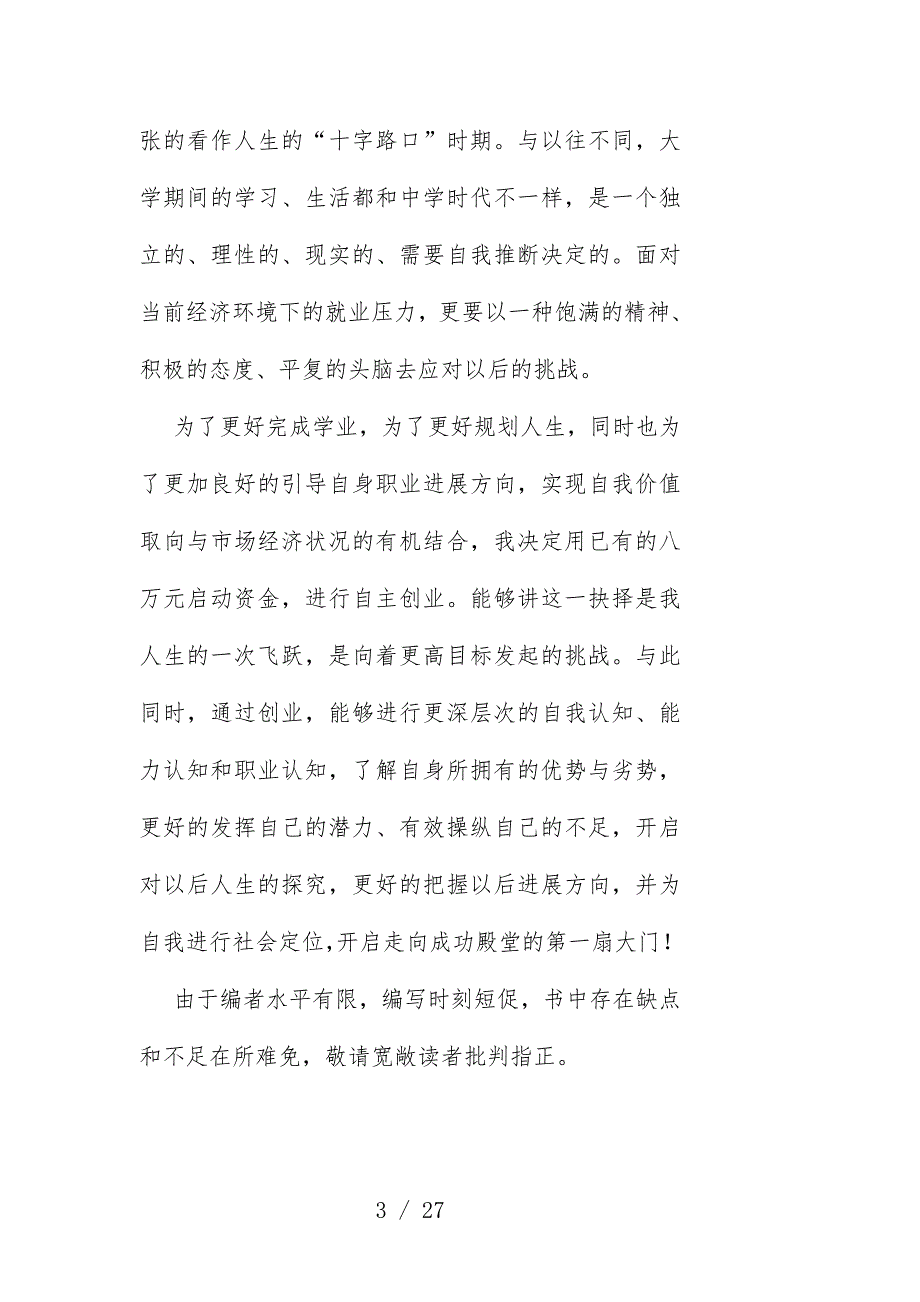 张的看作人生的“十字路口”时期。与以往不同，大
学期间的学习、生活都和中学时代不一样，是一个独
立的、理性的、现实的、需要自我推断决定的。面对
当前经济环境下的就业压力，更要以一种饱满的精神、
积极的态度、平复的头脑去应对以后的挑战。
为了更好完成学业，为了更好规划人生，同时也为
了更加良好的引导自身职业进展方向，实现自我价值
取向与市场经济状况的有机结合，我决定用已有的八
万元启动资金，进行自主创业。能够讲这一抉择是我
人生的一次飞跃，是向着更高目标发起的挑战。与此
同时，通过创业，能够进行更深层次的自我认知、能
力认知和职业认知，了解自身所拥有的优势与劣势，
更好的发挥自己的潜力、有效操纵自己的不足，开启
对以后人生的探究，更好的把握以后进展方向，并为
自我进行社会定位,开启走向成功殿堂的第一扇大门！
由于编者水平有限，编写时刻短促，书中存在缺点
和不足在所难免，敬请宽敞读者批判指正。
3 / 27